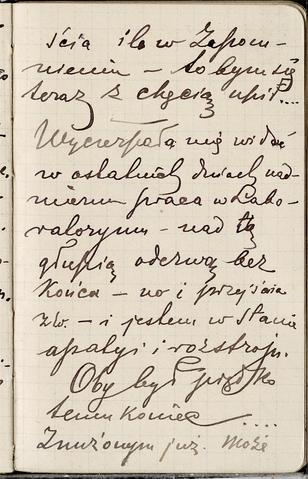 ścia ile w Zapom-
nieniu – to bym się
teraz z chęcią upił....
Wyczerpała mię widać
w ostatnich dniach nad-
mierna praca w Labo-
ratoryum – nad tą
głupią odezwą bez
końca – no i przejścia
zw. – i jestem w stanie
apatyi i rozstroju.
Oby był prędko
temu koniec ....
Znużonym już. Może